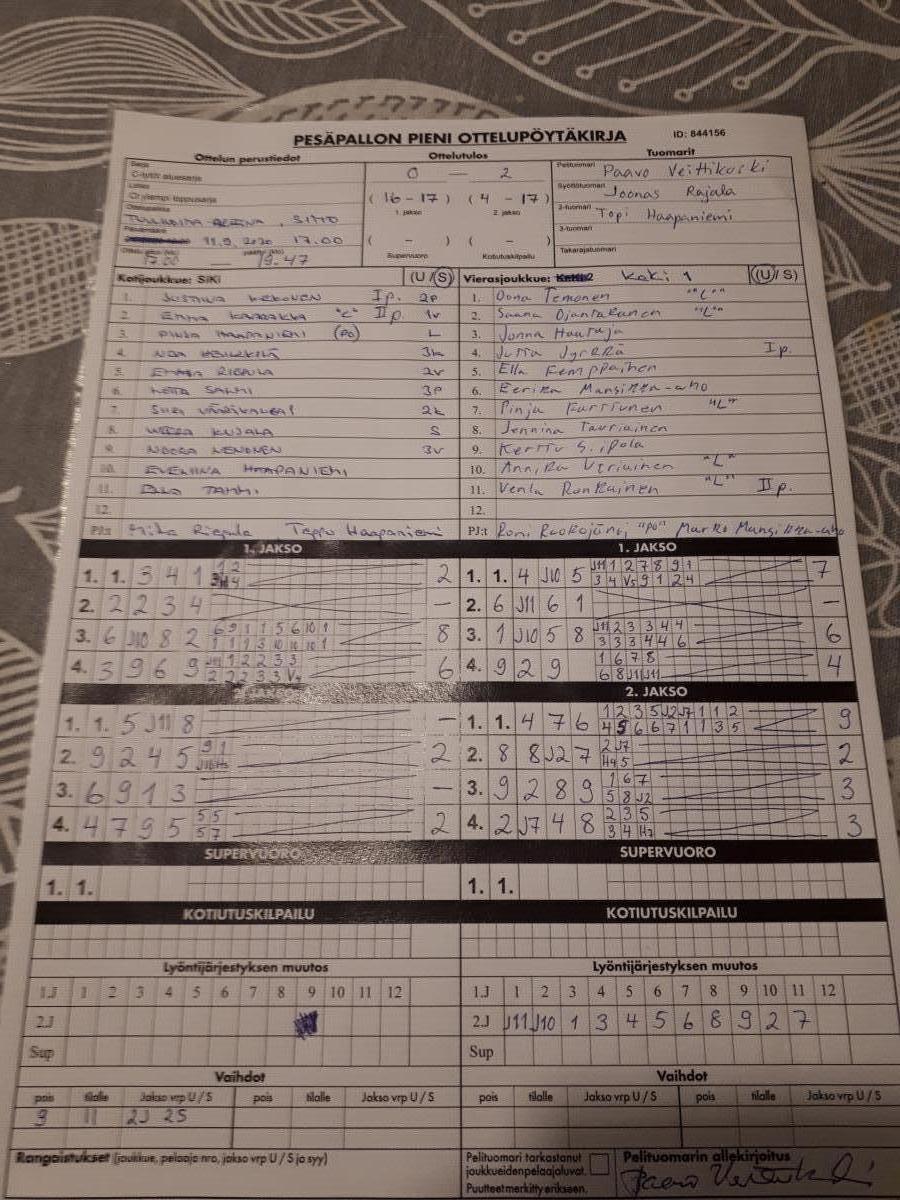 PESÄPALLON PIENI OTTELUPÖYTÄKIRJA ID: 844156
Ottelun perustiedot Ottelutulos Tuomarit
Sarja
C-tytöt aluesarja
0 — 2
Pelituomari Paavo Veittikoski
Lohko
Or ylempi loppusarja
( 16 - 17 ) ( 4 - 17 )
1. jakso 2. jakso
Syöttötuomari Joonas Rajala
2-tuomari Topi Haapaniemi
11.9. 2020 17.00
3-tuomari
17.00 — 19.47
( - ) ( - )
Supervuoro Kotiutuskilpailu
Takarajatuomari
Kotijoukkue: SiKi (U/S) Vierasjoukkue: KoKi 1 (U/S)
1. JUSTIINA KEKONEN I p. 2P
2. "C" II p. 1V
3. PINJA HAAPANIEMI (Po) L
4. NEA HEIKKILÄ 3k
5. EMMA RIEPULA 2V
6. SALMI 3P
7. SIIRI 2k
8. KUJALA S
9. NOORA NENONEN 3V
10. EVELIINA HAAPANIEMI
11. ELLA TAMMI
12.
PJ:t Mika Riepula Teppo Haapaniemi
1. Oona Temonen "L"
2. Saana Ojantakanen "L"
3. Jonna Hautaja
4. Jutta Jyrkkä I p.
5. Ella Kemppainen
6. Eerika Mansikka-aho
7. Pinja Kurttunen "L"
8. Jennina Tauriainen
9. Kerttu Siipola
10. Annika Utriainen "L"
11. Venla Ronkainen "L" II p.
12.
PJ:t Roni "PO" Marko Mansikka-aho
1. JAKSO 1. JAKSO
1. 1. 3 4 1 2
2. 2 2 3 4 —
3. 6 J10 8 2 6 9 1 1 5 6 10 1 8
1 1 1 3 10 10 10 1
4. 3 9 6 9 J11 1 2 2 3 3 6
2 2 2 3 3 V4
1. 1. 4 J10 5 J11 1 2 7 8 9 1 7
3 4 V5 9 1 2 4
2. 6 J11 6 1 —
3. 1 J10 5 8 J11 2 3 3 4 4 6
3 3 3 4 4 6
4. 9 2 9 1 6 7 8 4
6 8 J1 J11
2. JAKSO 2. JAKSO
1. 1. 5 J11 8 —
2. 9 2 4 5 9 1 2
3. 6 9 1 3 —
4. 4 7 9 5 5 5 2
5 7
1. 1. 4 7 6 1 2 3 5 J2 J7 1 1 2 9
4 5 6 6 7 1 1 3 5
2. 8 8 J2 7 2 J7 2
H4 5
3. 9 2 8 9 1 6 7 3
5 8 J2
4. 2 J7 4 8 2 3 5 3
3 4 H7
SUPERVUORO SUPERVUORO
1. 1. 1. 1.
KOTIUTUSKILPAILU KOTIUTUSKILPAILU
Lyöntijärjestyksen muutos Lyöntijärjestyksen muutos
1.J 1 2 3 4 5 6 7 8 9 10 11 12 1.J 1 2 3 4 5 6 7 8 9 10 11 12
2.J 2.J J11 J10 1 3 4 5 6 8 9 2 7
Sup Sup
Vaihdot Vaihdot
pois tilalle Jakso vrp U / S pois tilalle Jakso vrp U / S pois tilalle Jakso vrp U / S pois tilalle Jakso vrp U / S
9 11 2J 2S
Rangaistukset (joukkue, pelaaja nro, jakso vrp U / S ja syy)
Pelituomari tarkastanut joukkueidenpelaajaluvat.
Puutteet merkitty erikseen.
Pelituomarin allekirjoitus